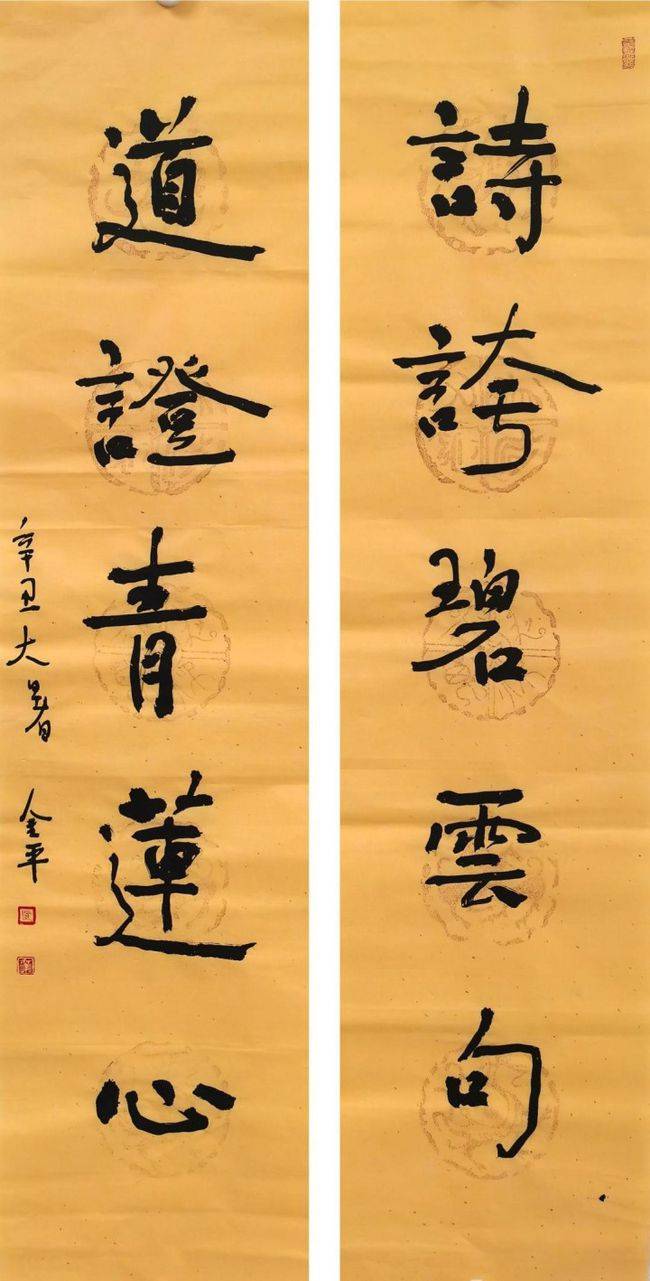 詩誇碧雲句
道證青蓮心
辛丑大暑 金平